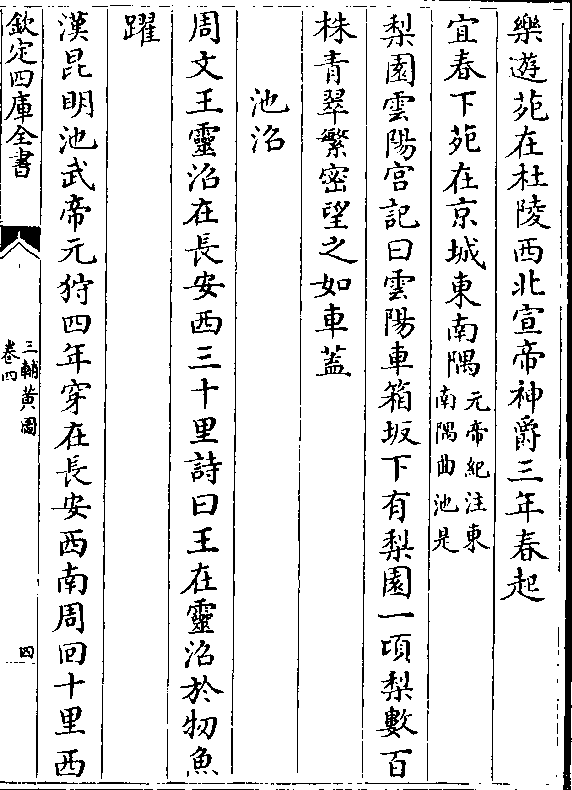 樂遊苑在杜陵西北宣帝神爵三年春起
宜春下苑在京城東南隅元帝紀注東南隅曲池是
梨園雲陽宫記曰雲陽車箱坂下有梨園一頃梨數百
株青翠繁密望之如車蓋
池沼
周文王靈沼在長安西三十里詩曰王在靈沼於牣魚
躍
漢昆明池武帝元狩四年穿在長安西南周回十里西
欽定四庫全書
三輔黄圖
卷四
四